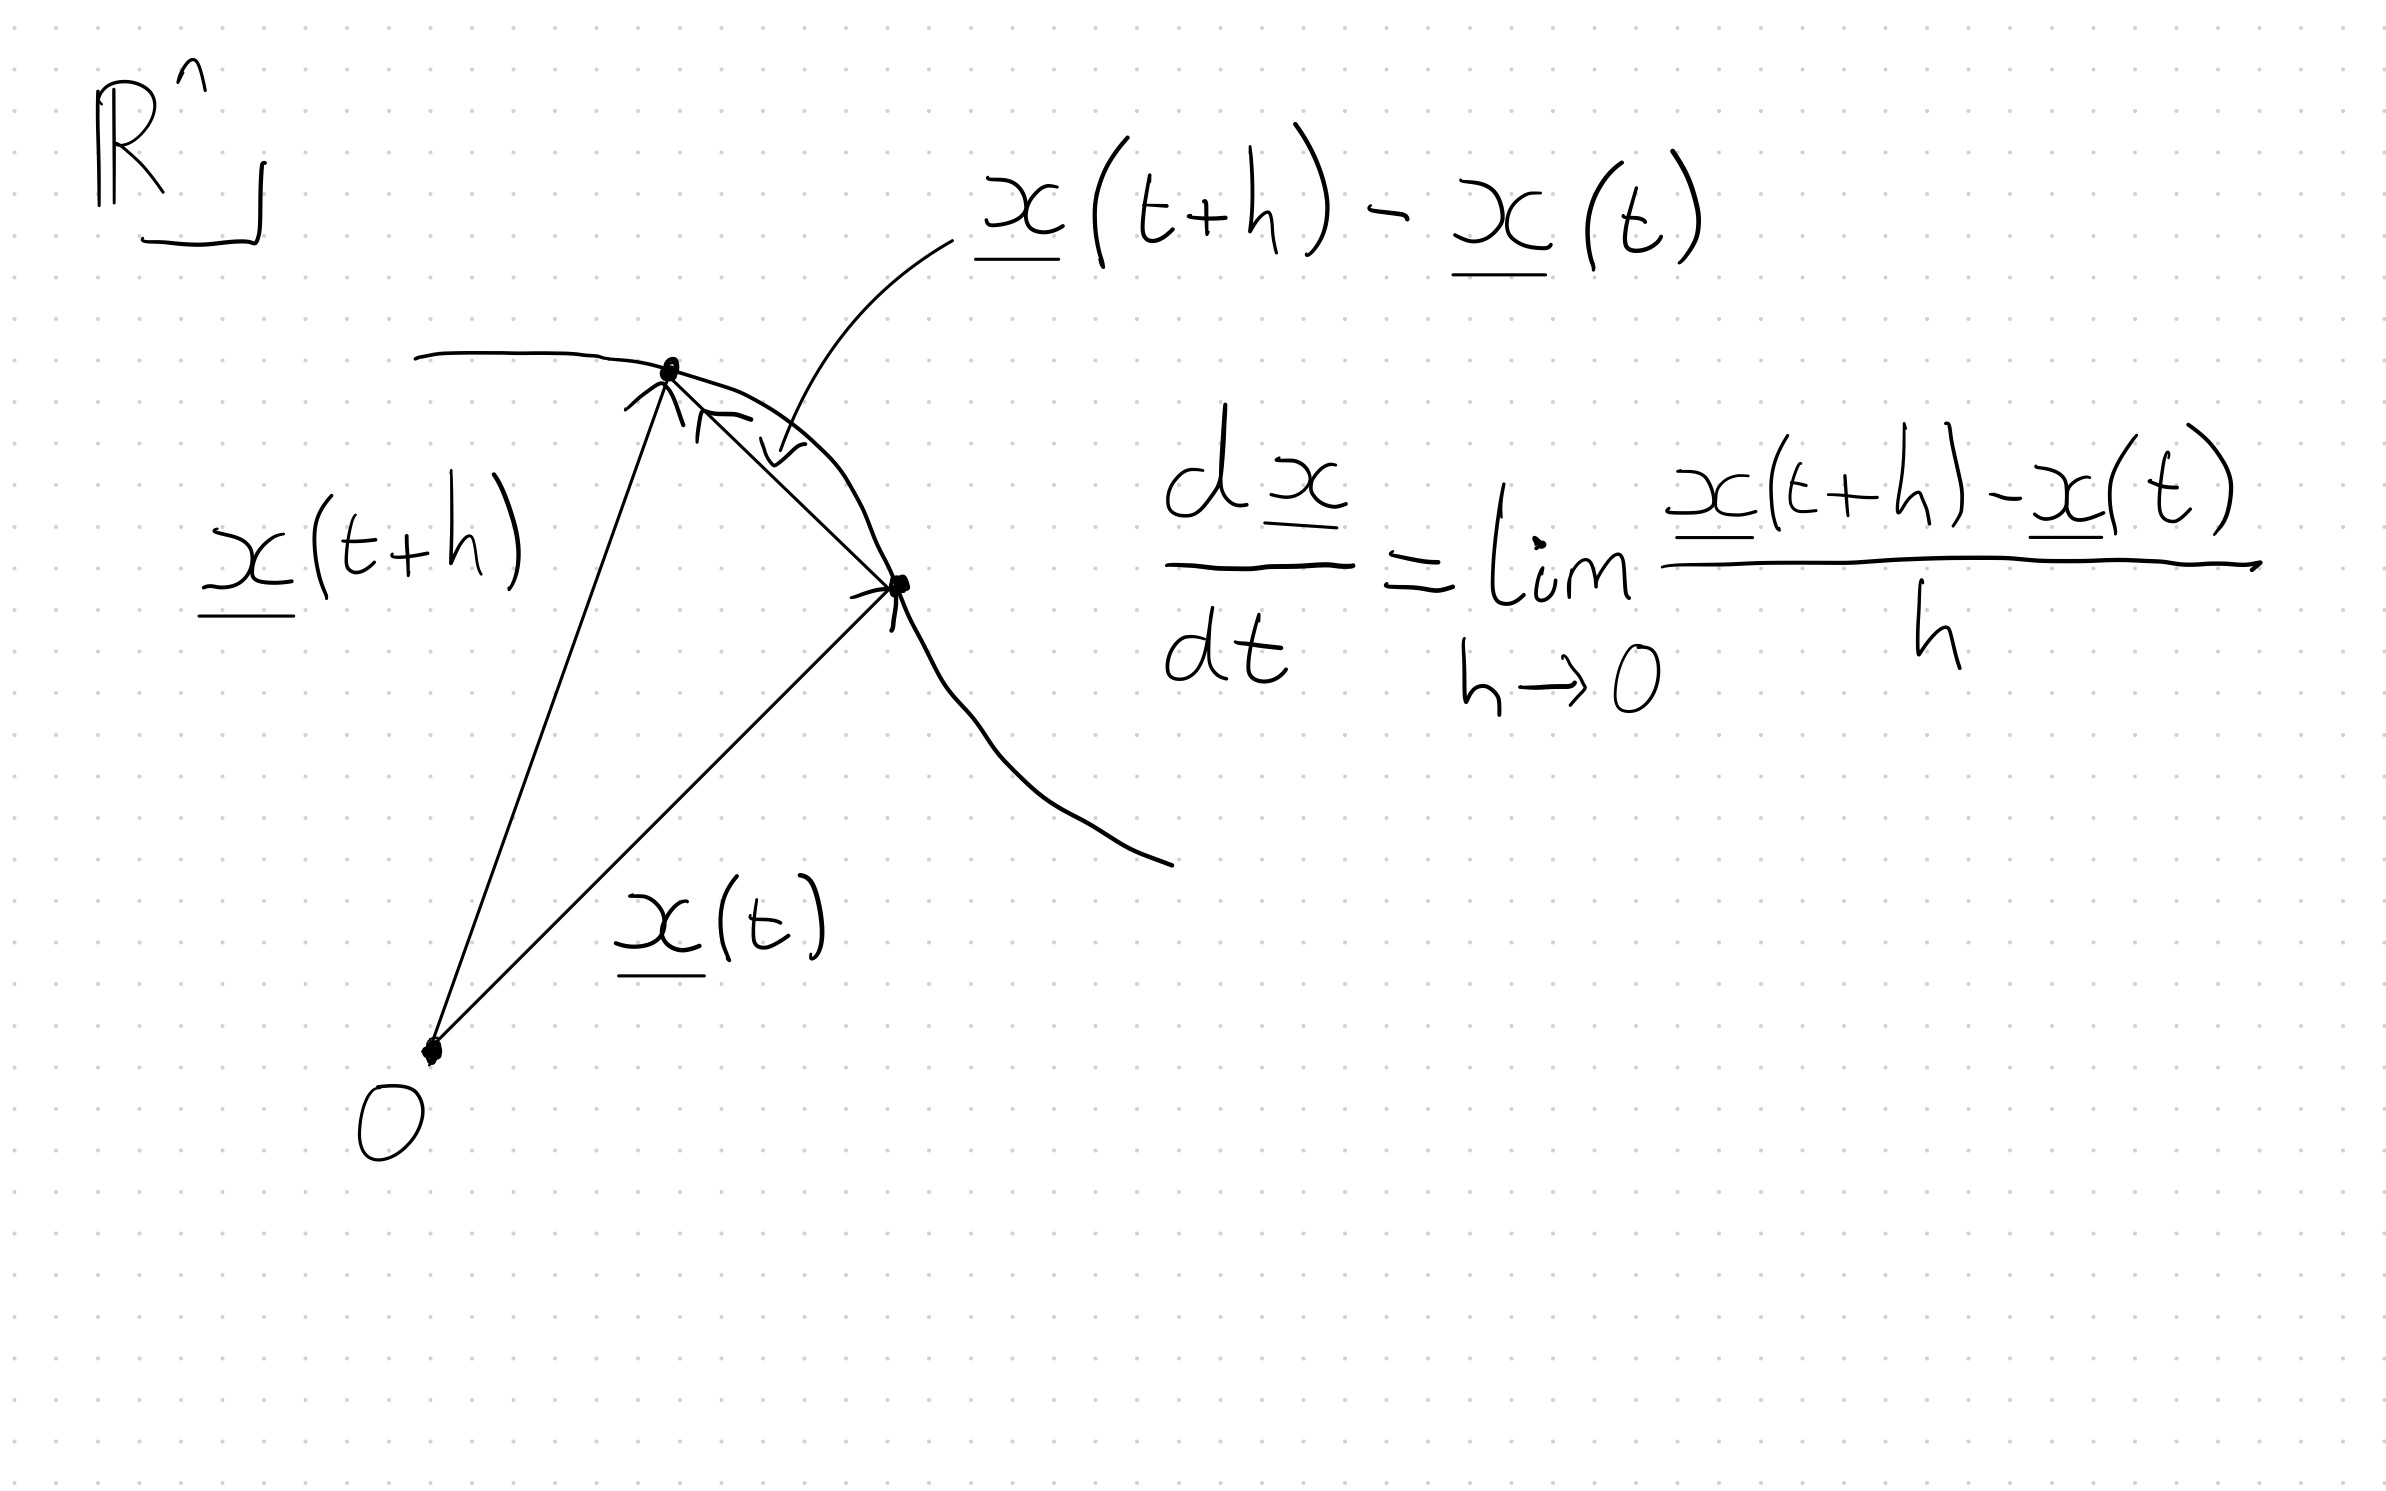 ℝⁿ
x(t+h) - x(t)
x(t+h)
dx/dt = lim h→0 (x(t+h) - x(t))/h
x(t)
O